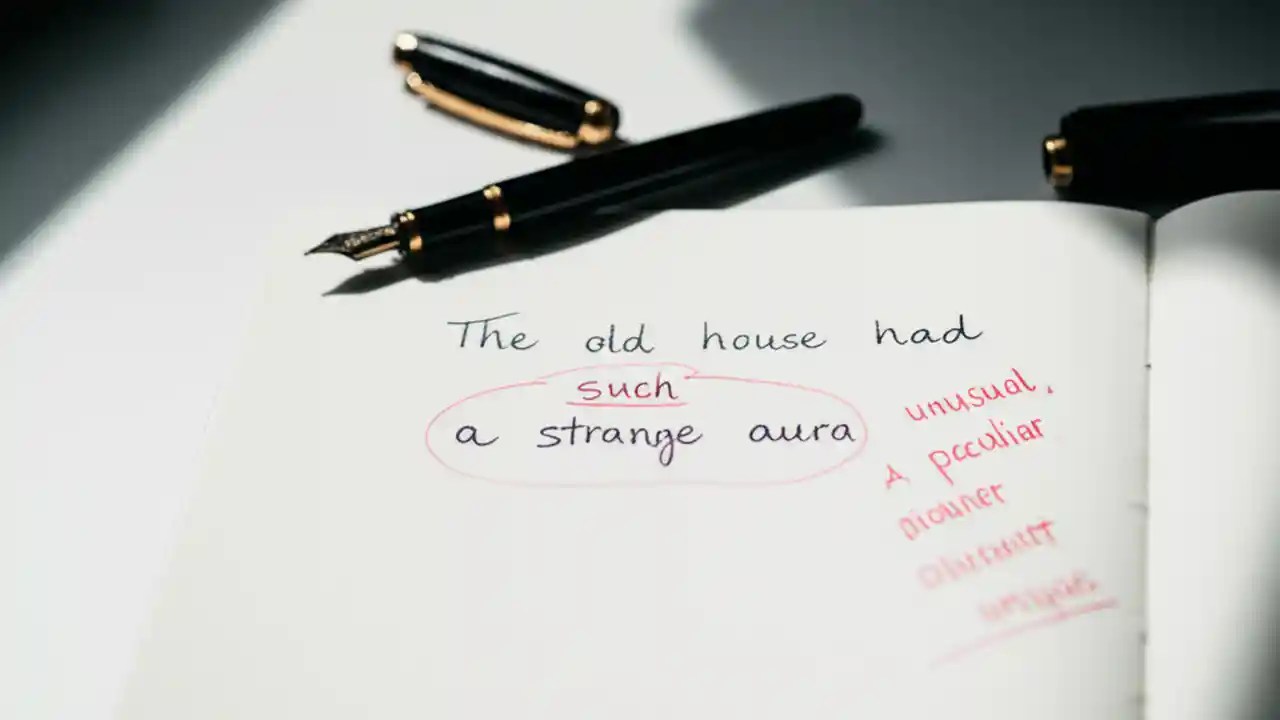 The old house had
such
a strange aura
unusual,
a peculiar